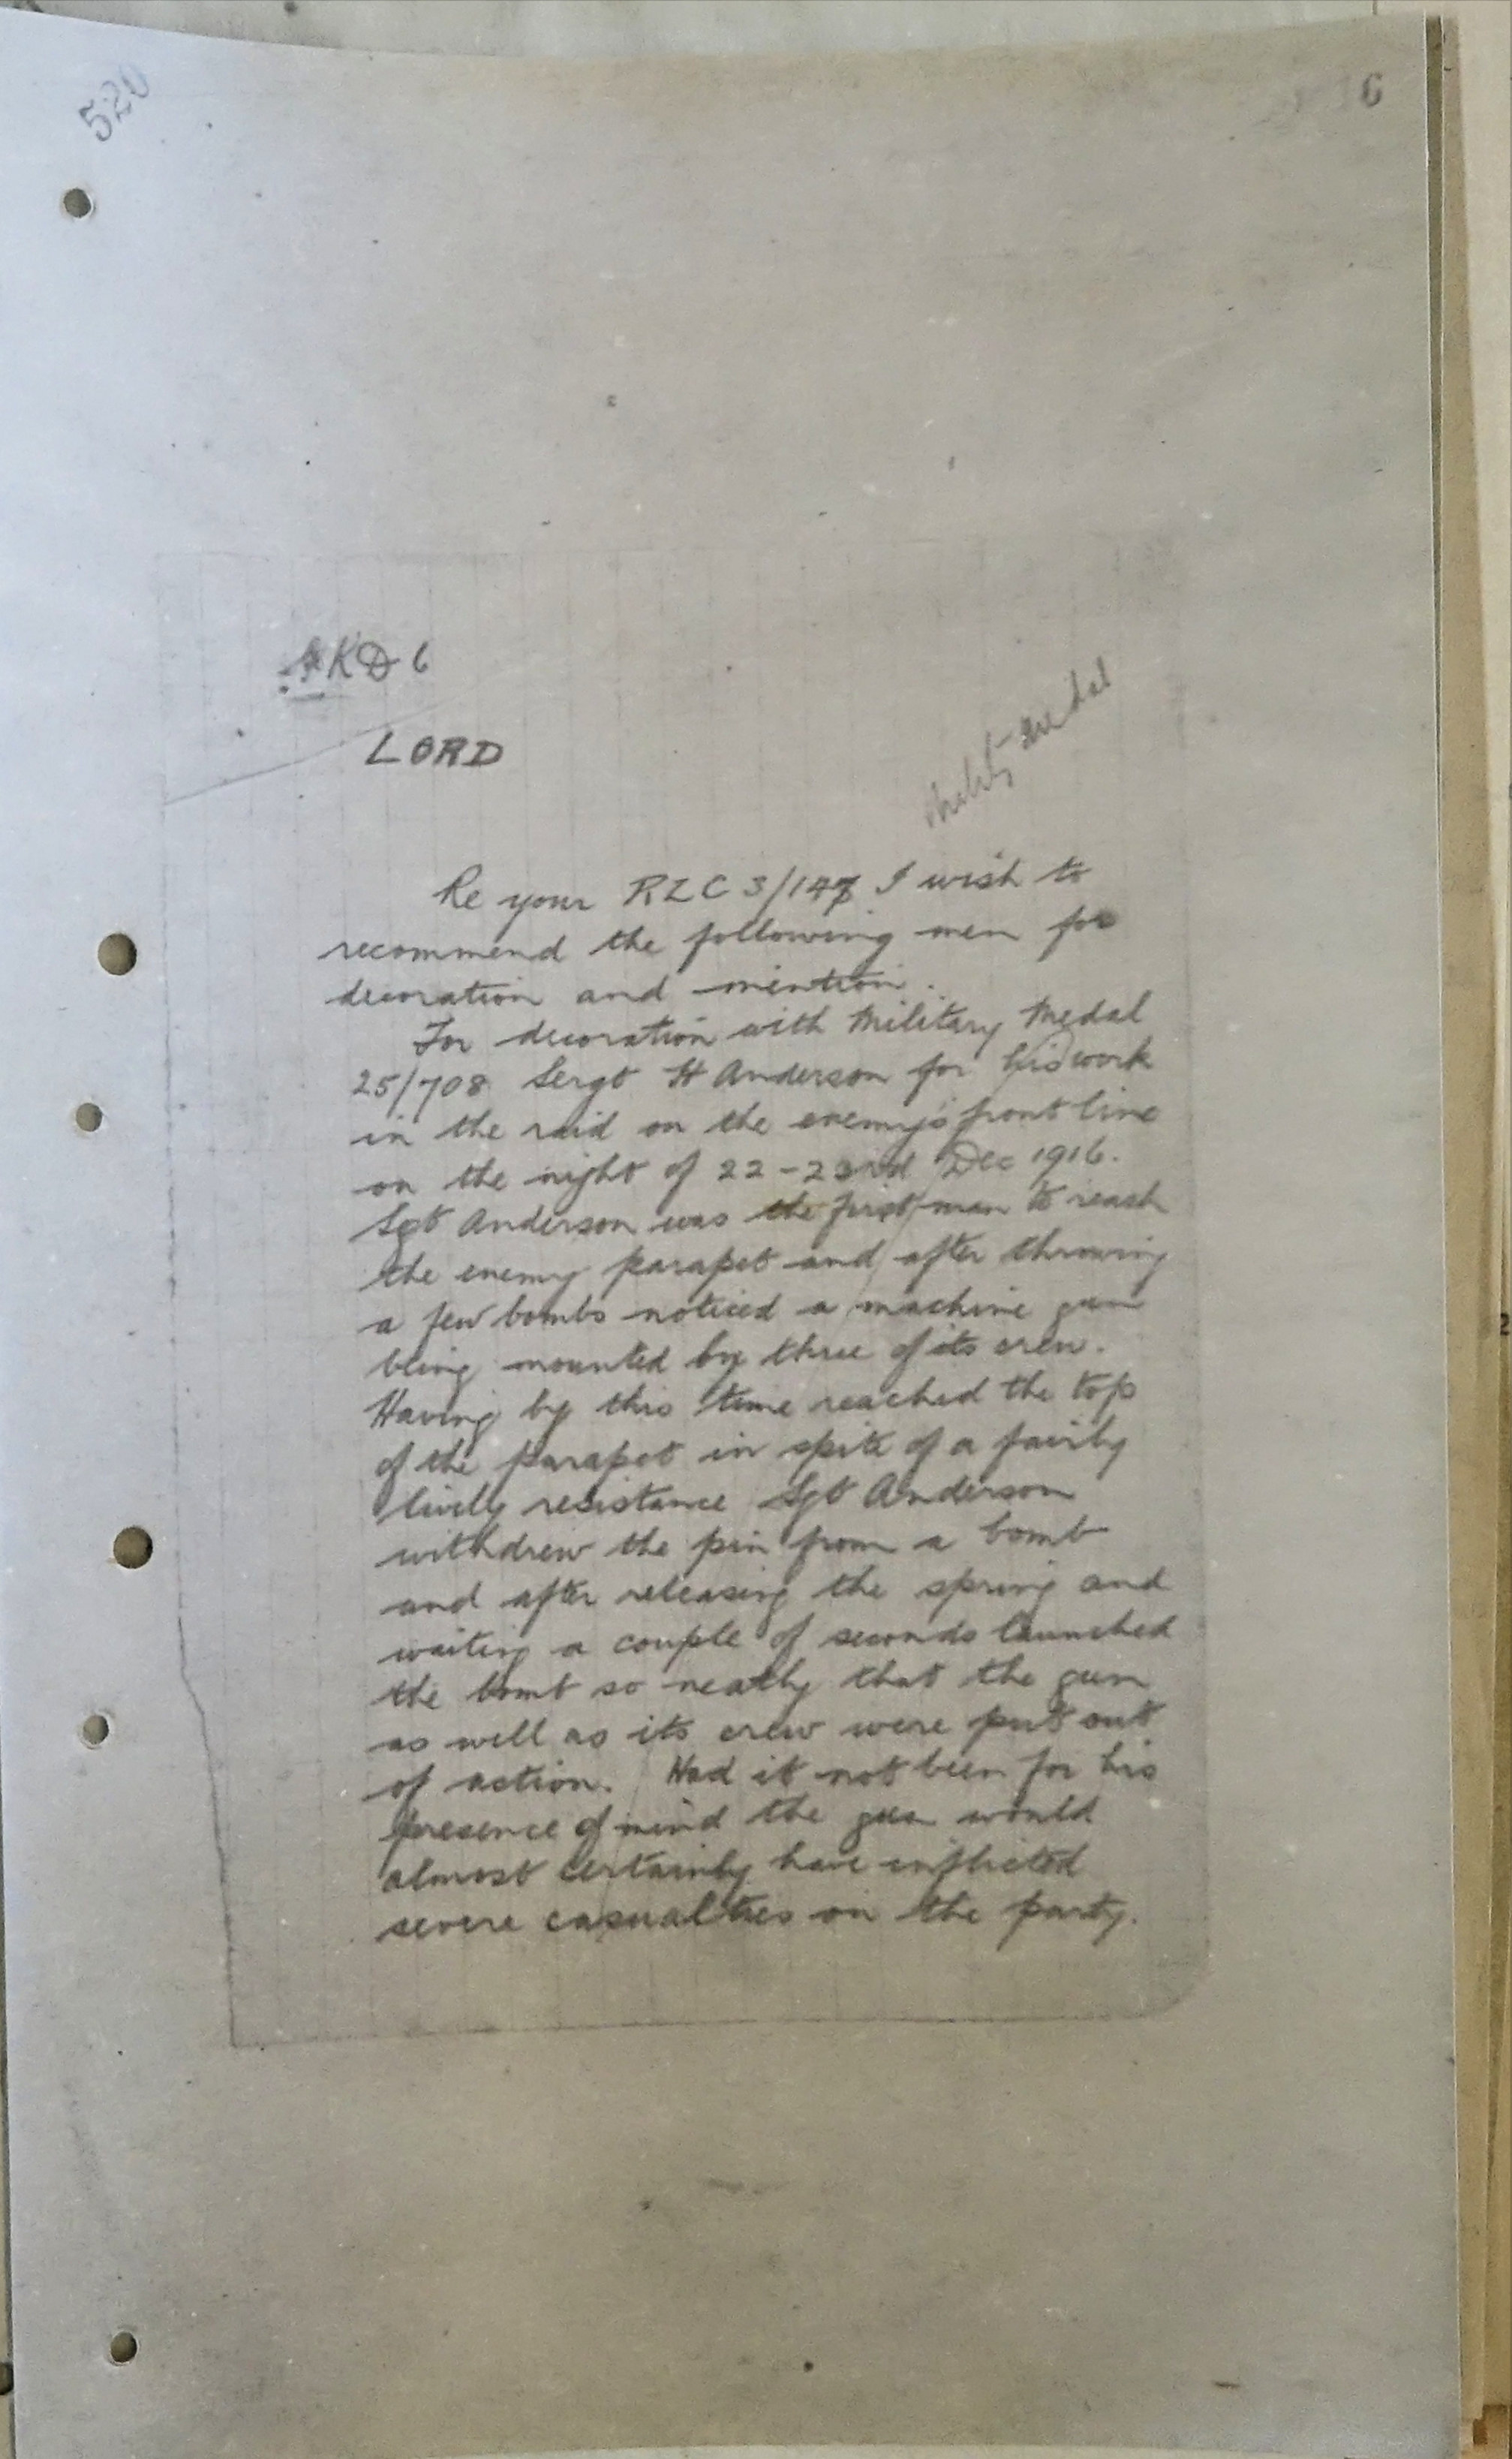 520
6
KD 6
LORD
Military Medal
Re your RLC 3/147 I wish to
recommend the following men for
decoration and mention.
For decoration with Military Medal
25/708 Sergt H Anderson for his work
in the raid on the enemy's front line
on the night of 22-23rd Dec 1916.
Sgt Anderson was the first man to reach
the enemy parapet and after throwing
a few bombs noticed a machine gun
being mounted by three of its crew.
Having by this time reached the top
of the parapet in spite of a fairly
lively resistance Sgt Anderson
withdrew the pin from a bomb
and after releasing the spring and
waiting a couple of seconds launched
the bomb so neatly that the gun
as well as its crew were put out
of action. Had it not been for his
presence of mind the gun would
almost certainly have inflicted
severe casualties on the party.